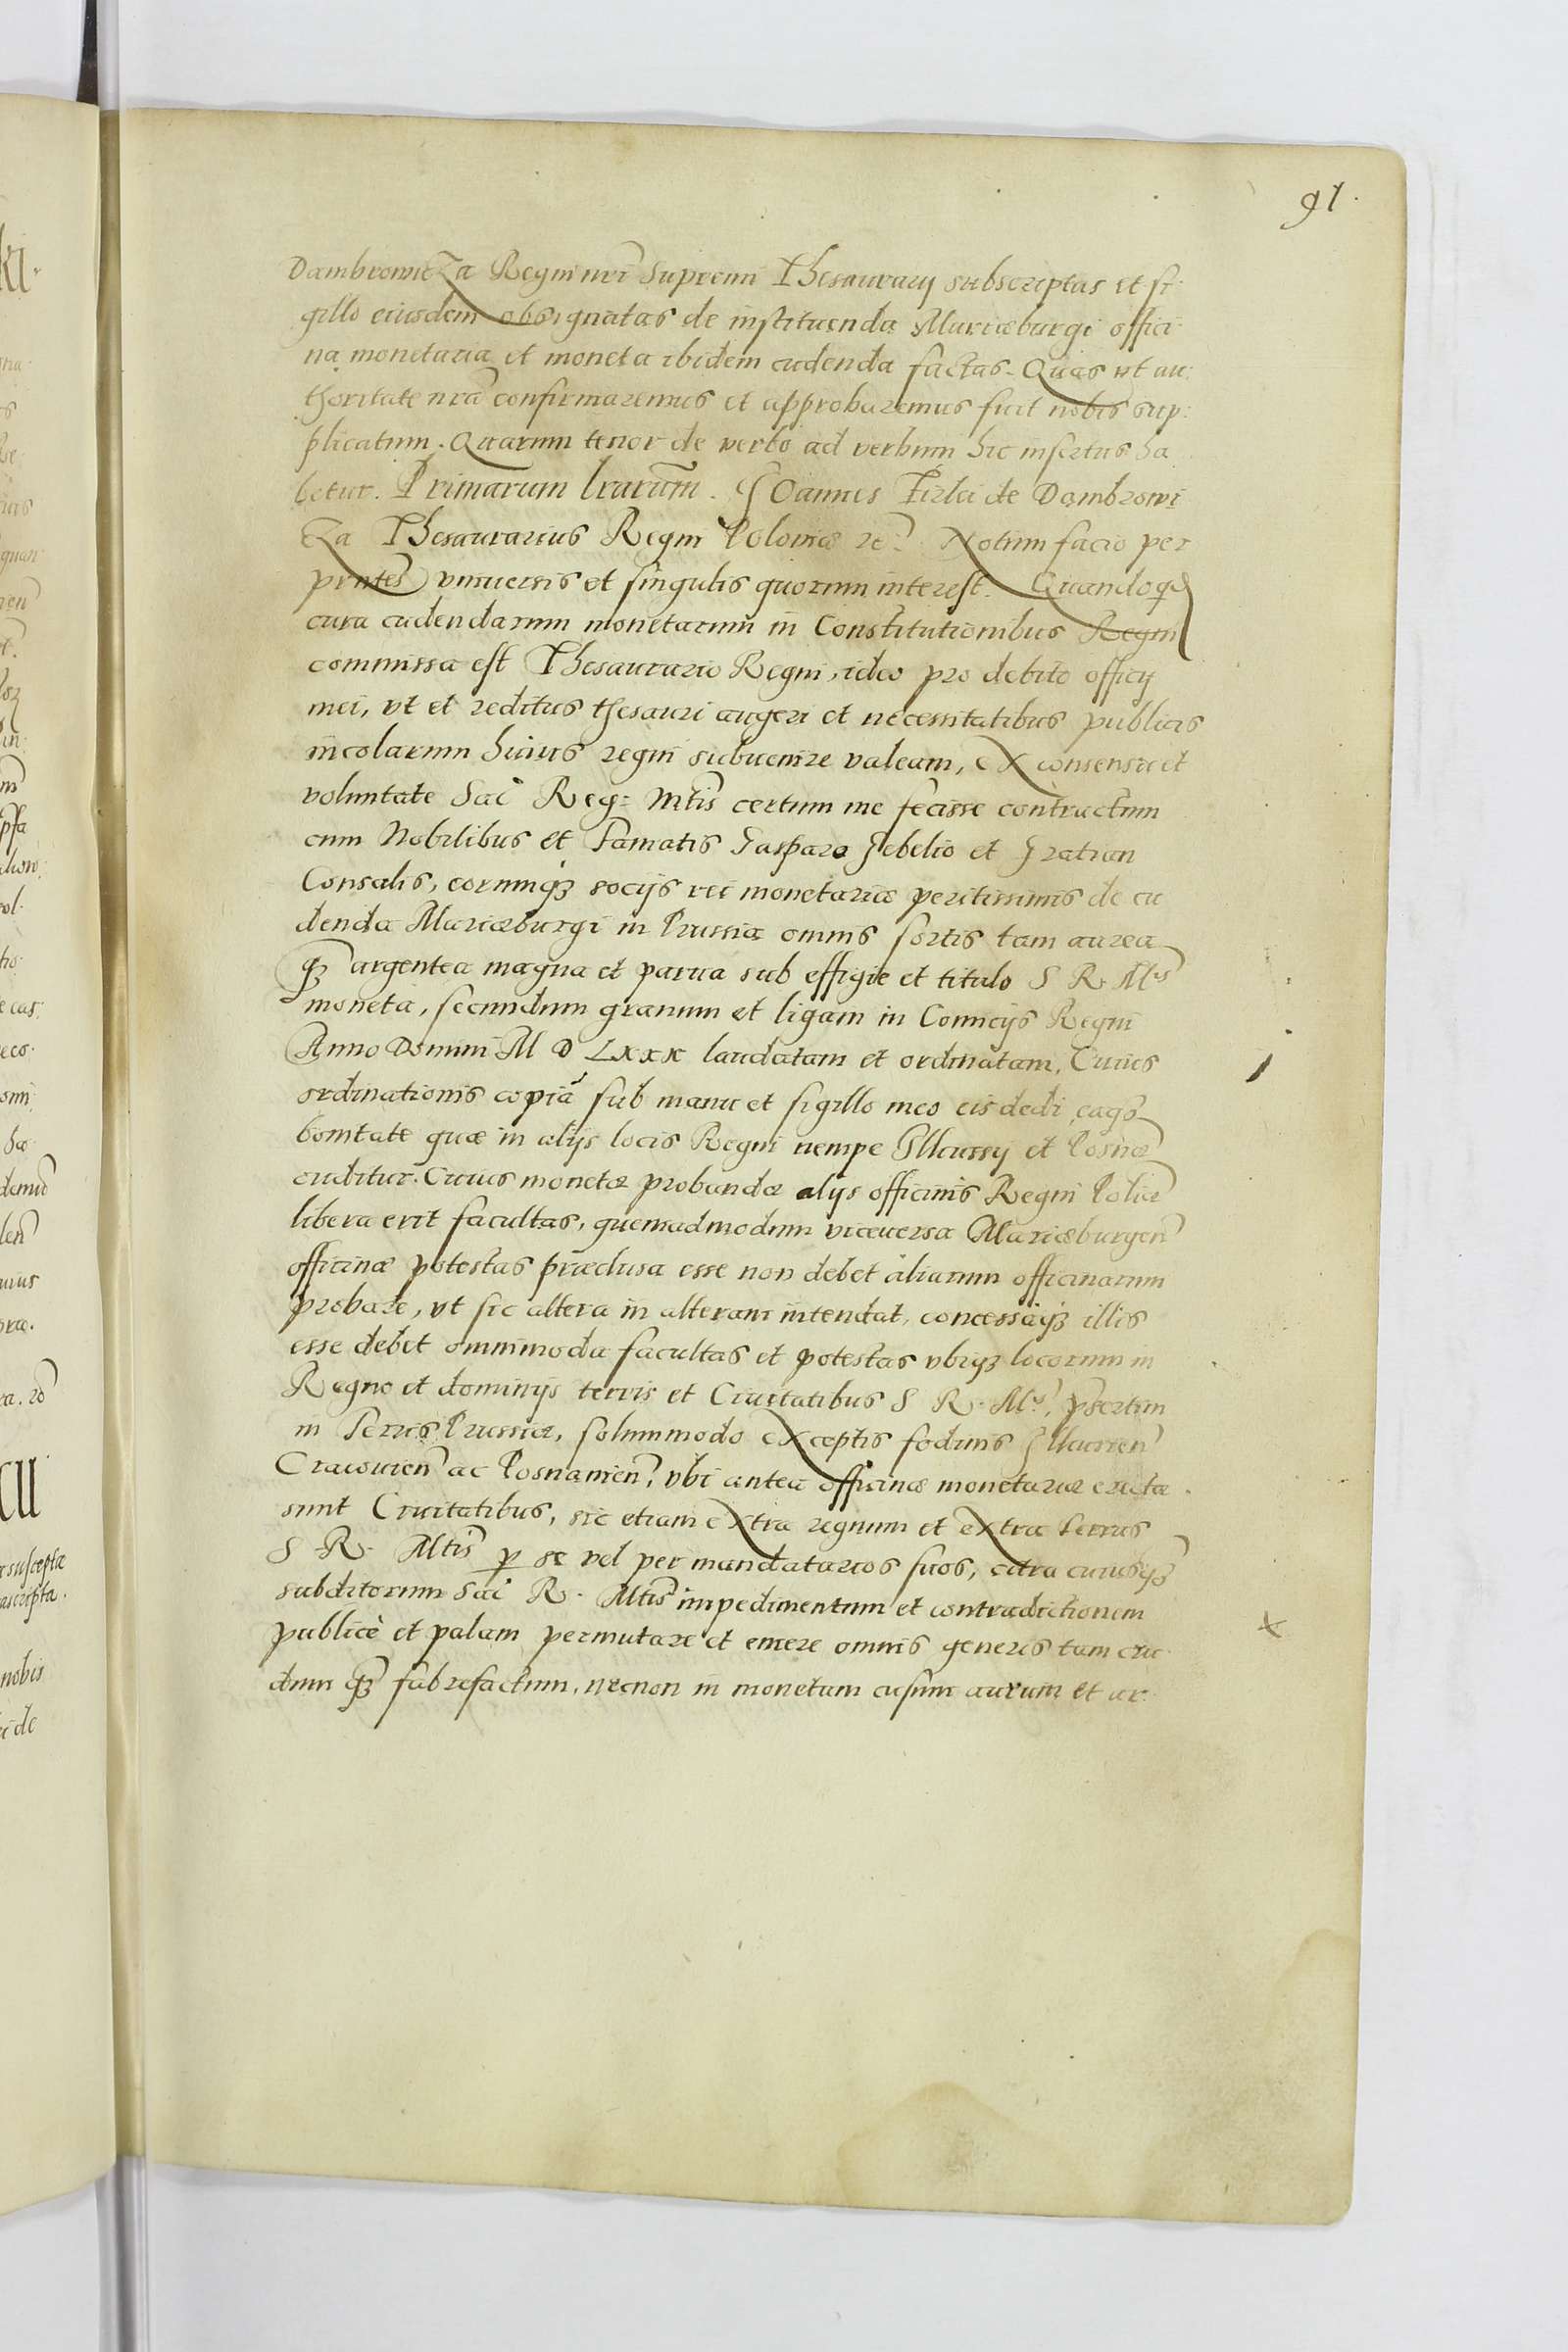 91.
Dambrowicza Regni nri Supremi Thesaurarij subscriptas et si
gillo eiusdem obsignatas de instituenda Mariæburgi offici
na monetaria et moneta ibidem cudenda factas. Quas ut au:
thoritate nrã confirmaremus et approbaremus fuit nobis sup:
plicatum. Quarum tenor de verbo ad verbum hic insertus ha
betur. Primarum lrarum. Joannes Firlei de Dambrowi
Za Thesaurarius Regni Poloniæ rc. Notum facio per
pr̃ntes vniuersis et singulis quorum interest. Quandoq̃
cura cudendarum monetarum in Constitutionibus Regni
commissa est Thesaurario Regni, ideo pro debito officij
mei, vt et reditus thesauri augeri et necessitatibus publicis
incolarum huius regni subuenire valeam, ex consensu et
voluntate Sac̃ Reg: Mtis certum me fecisse contractum
cum Nobilibus et Famatis Gasparo Gebelio et Gratian
Consalis, eorumq3 socijs rei monetariæ peritissimis de cu
denda Mariæburgi in Prussia omnis sortis tam aurea
q3 argentea magna et parua sub effigie et titulo S R. Mtis
moneta, secundum granum et ligam in Comicijs Regni
Anno Domini M D LXXX laudatam et ordinatam, Cuius
ordinationis copiã sub manu et sigillo meo eis dedi, eaq3
bonitate quæ in alijs locis Regni nempe Ilkussij et Posnæ
cuditur. Cuius monetæ probandæ alijs officinis Regni Poliæ
libera erit facultas, quemadmodum viceuersa Mariæburgeñ
officinæ potestas præclusa esse non debet aliarum officinarum
probare, vt sic altera in alteram intendat, concessaq3 illis
esse debet omnimoda facultas et potestas vbiq3 locorum in
Regno et dominijs terris et Ciuitatibus S R. Mtis, p̃sertim
in Terris Prussiæ, solummodo exceptis fodinis Ilkussieñ
Cracouieñ ac Posnanieñ, vbi antea officinæ monetariæ erectæ
sunt Ciuitatibus, sic etiam extra regnum et extra terras
S R. Mtis p se vel per mandatarios suos, citra cuiusq3
subditorum Sac̃ R. Mtis impedimentum et contradictionem
publicè et palam permutare et emere omnis generis tam cru
dum q3 fabrefactum, necnon in monetam cusum aurum et ar: